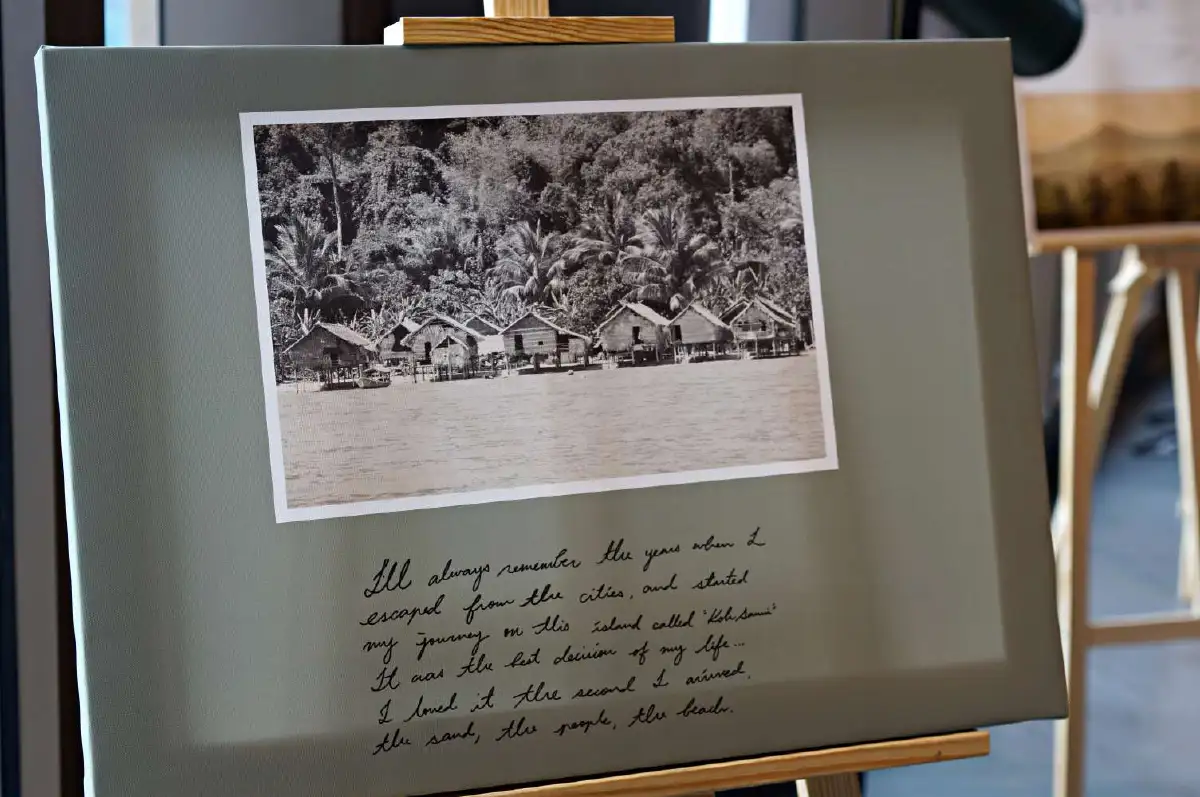 I'll always remember the years when I
escaped from the cities, and started
my journey on this island called "Koh Samui"
It was the best decision of my life...
I loved it the second I arrived,
the sand, the people, the beach.